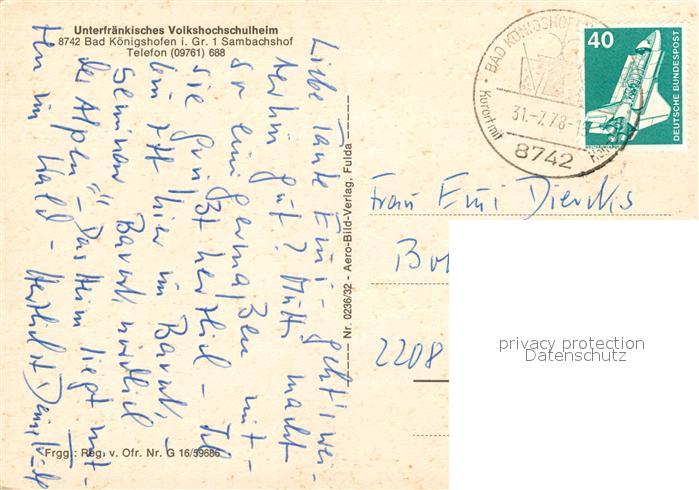 Unterfränkisches Volkshochschulheim
8742 Bad Königshofen i. Gr. 1 Sambachshof
Telefon (09761) 688
Liebe Tante Emi - geht's wei-
terhin gut? Mutti macht
so einigermaßen mit -
sie grüßt herzlich - Ich
bin ztt hier im Barock-
Seminar „Barock nördlich
der Alpen" - Das Heim liegt mit-
ten im Wald - Herzlichst Deine
Frgg.: Reg. v. Ofr. Nr. G 16/59686
Nr. 0236/32 - Aero-Bild-Verlag, Fulda
BAD KÖNIGSHOFEN
31.-7.78-
Kurort mit
8742
40
DEUTSCHE BUNDESPOST
Frau Emi Diercks
2208
privacy protection
Datenschutz